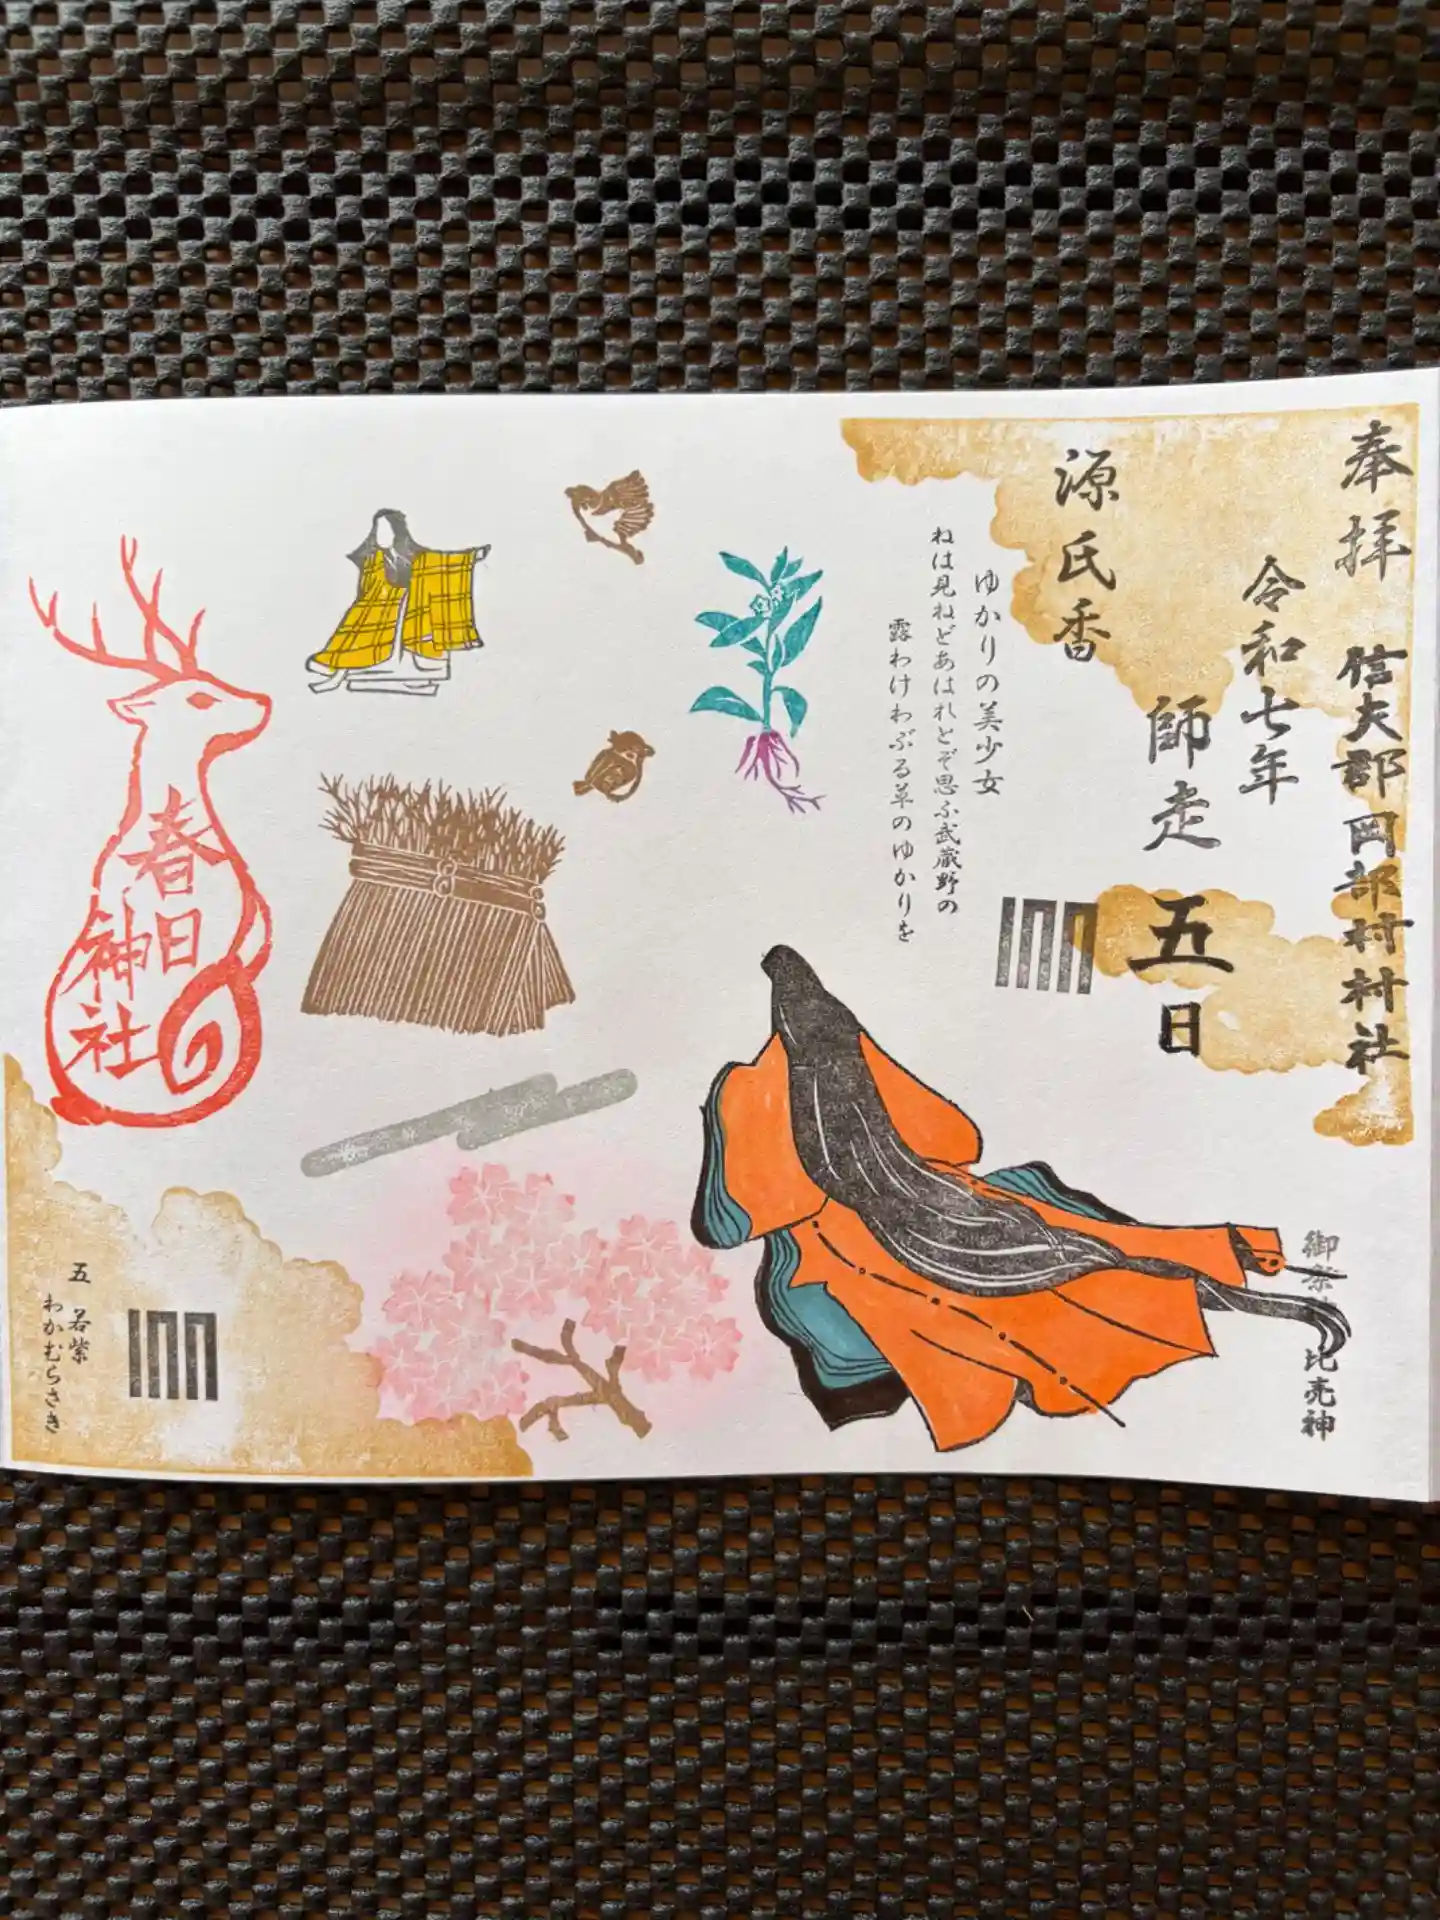 奉拝
信夫郡岡部村村社
令和七年
師走五日
源氏香
ゆかりの美少女
ねは見ねどあはれとぞ思ふ武蔵野の
露わけわぶる草のゆかりを
比売神
春日
神社
五 若紫
わかむらさき